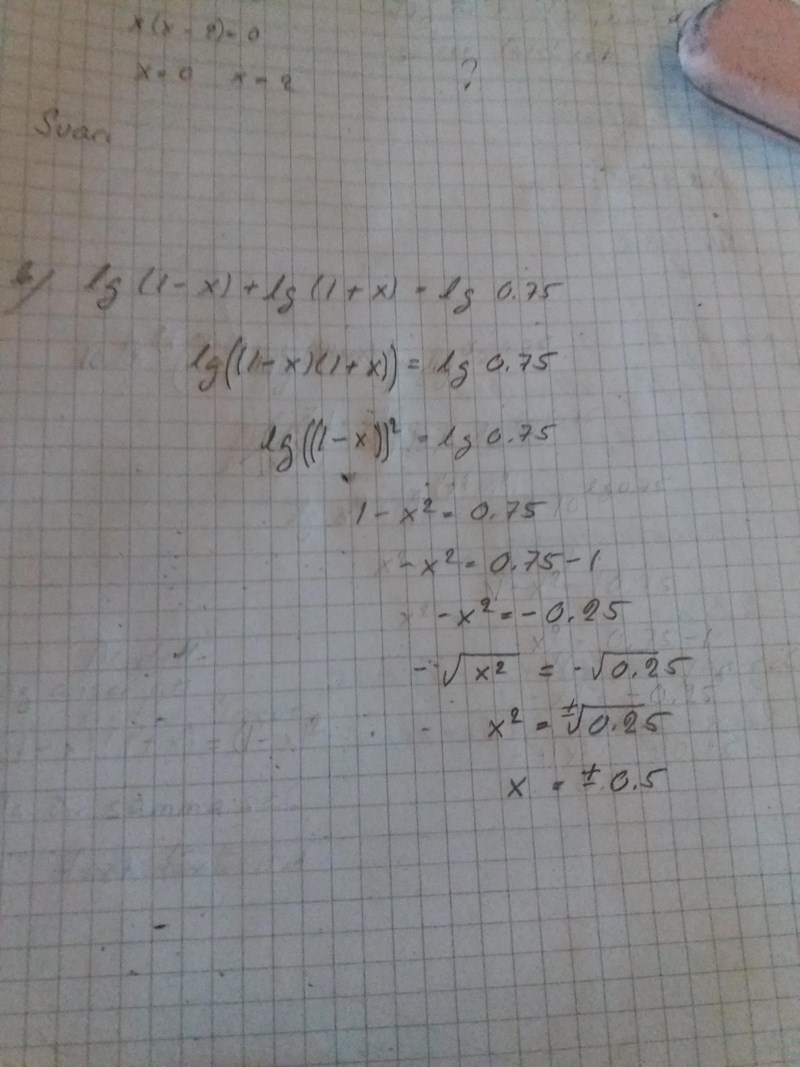 x(x - 2) = 0
x = 0 x = 2
?
Svar:
b) lg (1 - x) + lg (1 + x) = lg 0.75
lg((1 - x)(1 + x)) = lg 0.75
lg((1 - x))² = lg 0.75
1 - x² = 0.75
- x² = 0.75 - 1
- x² = - 0.25
- √x² = - √0.25
x² = ±√0.25
x = ± 0.5